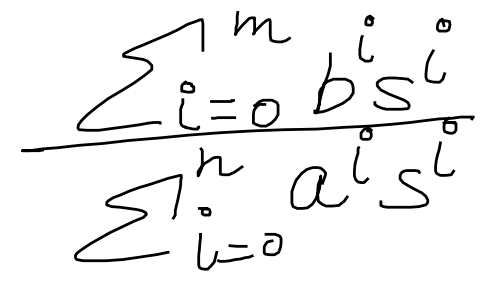 \frac{\sum_{i=0}^{m} b^i s^i}{\sum_{i=0}^{n} a^i s^i}